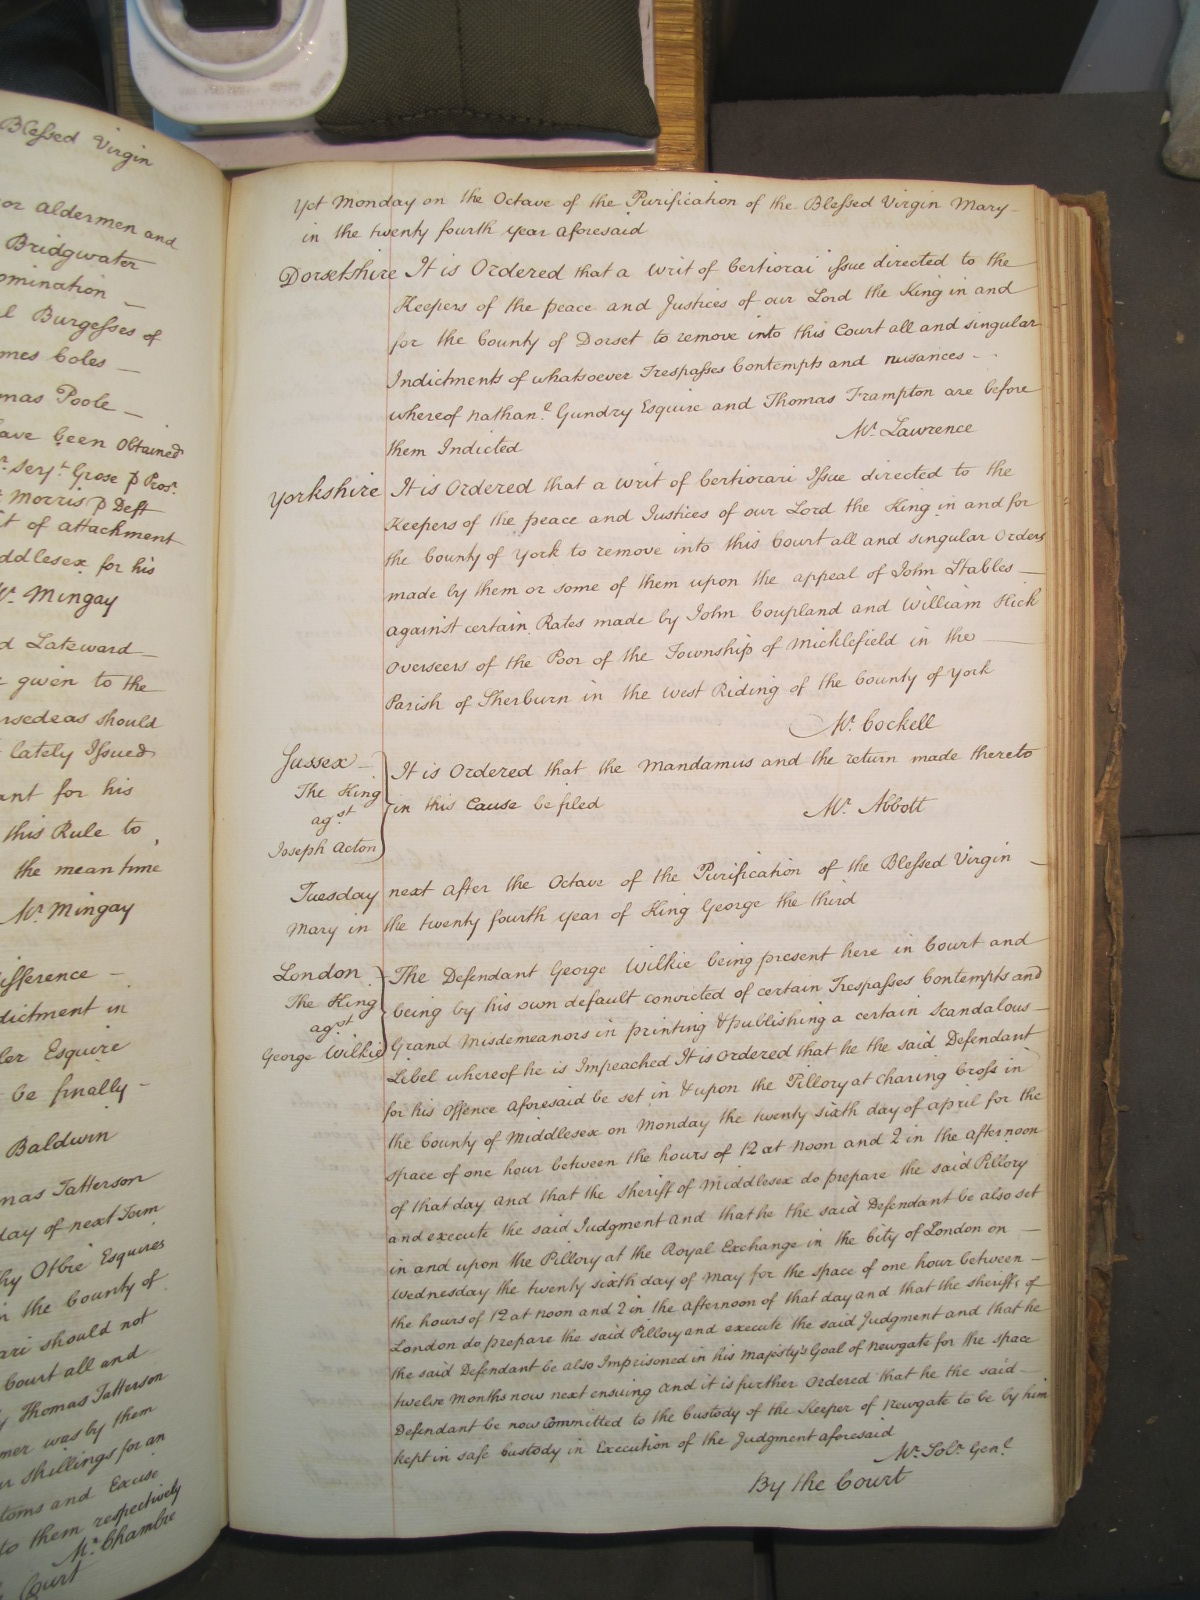 Blessed Virgin
or Aldermen and
Bridgwater
omination —
l Burgesses of
mes Coles —
mas Poole —
ave been Obtained
Serjt. Grose p Prosr.
Morris p Deft
t of attachment
ddlesex for his
Mr. Mingay
d Lateward —
given to the
rsedeas should
lately Issued
ant for his
this Rule to
the mean time
Mr. Mingay
ifference —
dictment in
ler Esquire
be finally —
Baldwin
mas Tatterson
day of next Term
hy Otbie Esquires
n the County of
ari should not
Court all and
y Thomas Tatterson
mer was by them
ur shillings for an
toms and Excise
to them respectively
Mr. Chambre
Court
Yet Monday on the Octave of the Purification of the Blessed Virgin Mary —
in the twenty fourth year aforesaid
Dorsetshire It is Ordered that a Writ of Certiorai issue directed to the
Keepers of the peace and Justices of our Lord the King in and
for the County of Dorset to remove into this Court all and singular
Indictments of whatsoever Trespasses Contempts and nusances —
whereof Nathanl. Gundry Esquire and Thomas Frampton are before
them Indicted Mr. Lawrence
Yorkshire It is Ordered that a Writ of Certiorari Issue directed to the
Keepers of the peace and Justices of our Lord the King in and for
the County of York to remove into this Court all and singular Orders
made by them or some of them upon the appeal of John Stables —
against certain Rates made by John Coupland and William Hick
Overseers of the Poor of the Township of Micklefield in the —
Parish of Sherburn in the West Riding of the County of York
Mr. Cockell
Sussex —
The King
agst
Joseph Acton
It is Ordered that the Mandamus and the return made thereto
in this Cause be filed Mr. Abbott
Tuesday next after the Octave of the Purification of the Blessed Virgin —
Mary in the twenty fourth year of King George the third
London
The King
agst
George Wilkie
The Defendant George Wilkie being present here in Court and
being by his own default convicted of certain Trespasses Contempts and
Grand Misdemeanors in printing & publishing a certain Scandalous —
Libel whereof he is Impeached It is Ordered that he the said Defendant
for his Offence aforesaid be set in & upon the Pillory at Charing Cross in
the County of Middlesex on Monday the twenty sixth day of April for the
space of one hour between the hours of 12 at Noon and 2 in the afternoon
of that day and that the Sheriff of Middlesex do prepare the said Pillory
and execute the said Judgment and that he the said Defendant be also set
in and upon the Pillory at the Royal Exchange in the City of London on —
Wednesday the twenty sixth day of May for the space of one hour between —
the hours of 12 at Noon and 2 in the afternoon of that day and that the Sheriffs of
London do prepare the said Pillory and execute the said Judgment and that he
the said Defendant be also Imprisoned in his Majesty's Goal of Newgate for the space
twelve Months now next ensuing and it is further Ordered that he the said —
Defendant be now Committed to the Custody of the Keeper of Newgate to be by him
kept in safe Custody in Execution of the Judgment aforesaid
Mr. Solr. Genl.
By the Court